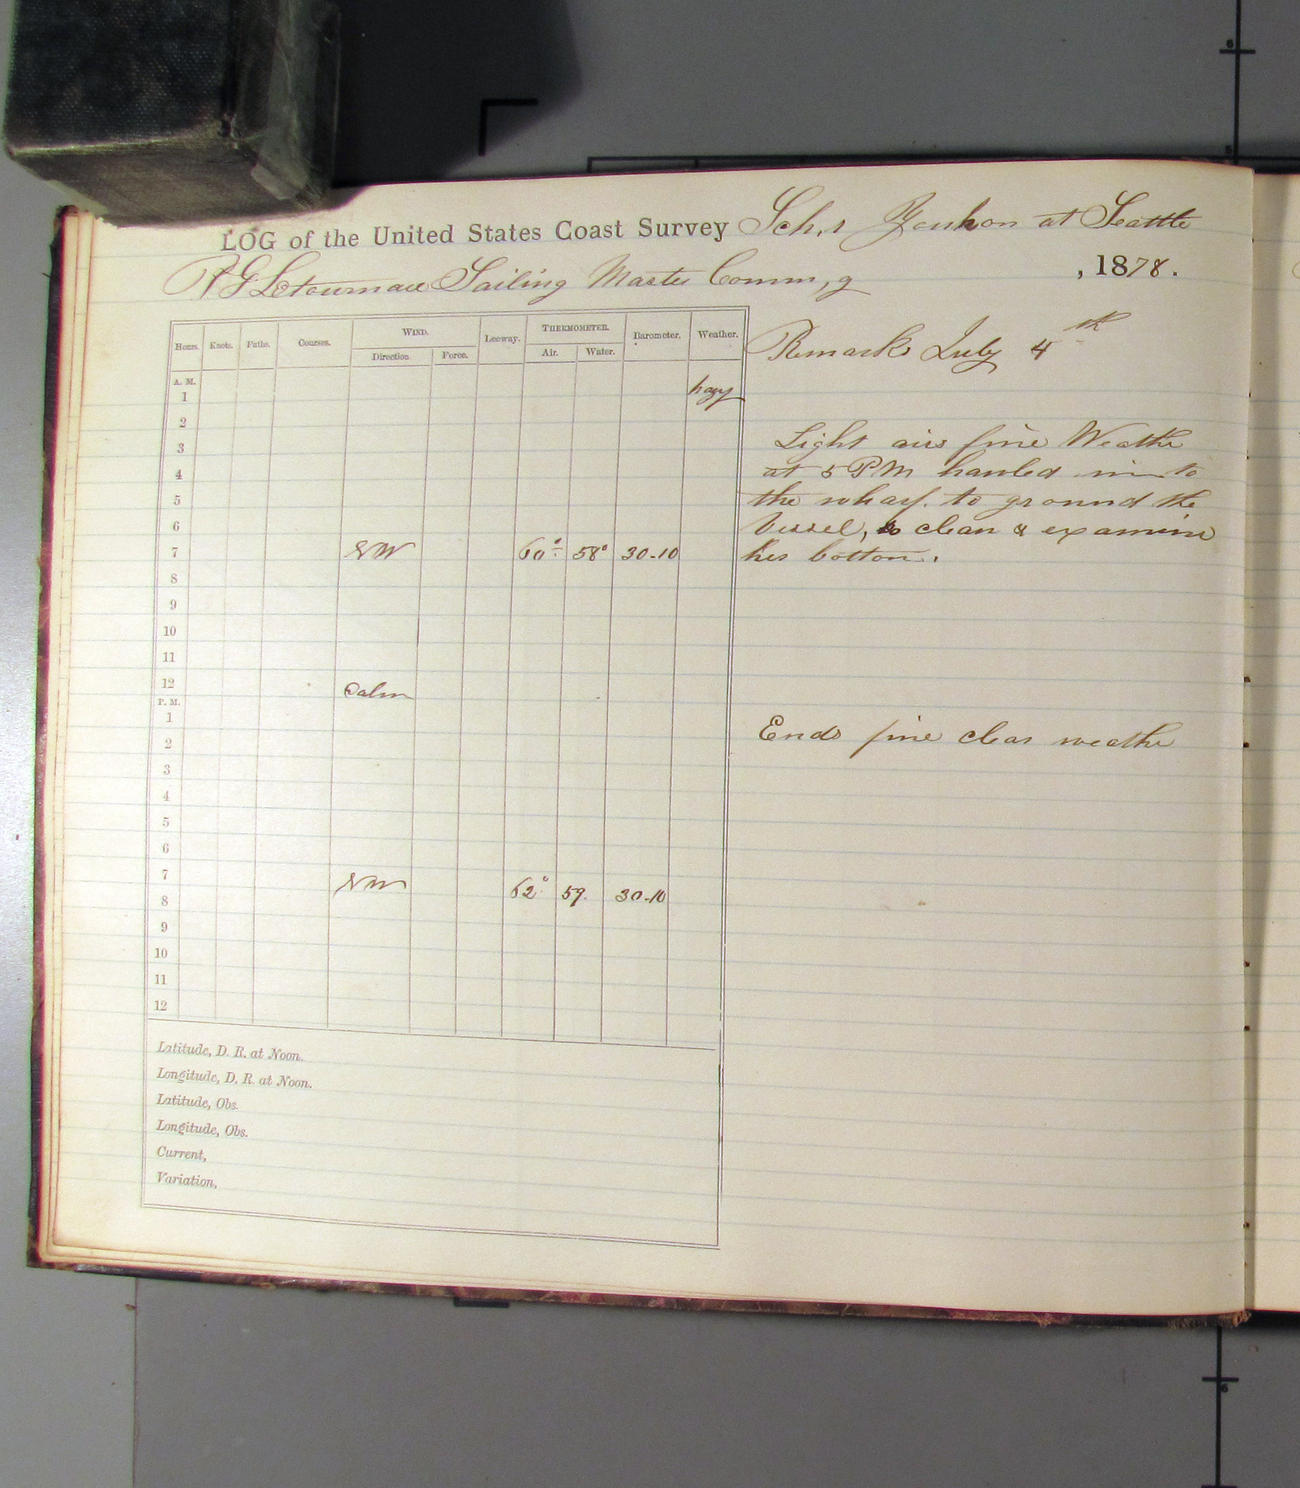 LOG of the United States Coast Survey Schr Yukon at Seattle
Sailing Master Comm,g , 1878.
Hours. Knots. Faths. Courses. WIND. Leeway. THERMOMETER. Barometer. Weather.
Direction. Force. Air. Water.
Remarks July 4th
A. M.
1 hazy
2
3 Light airs fine Weathe
4 at 5 PM hauled in to
5 the wharf. to ground the
6 Vessel, to clean & examine
7 NW 60° 58° 30-10 her bottom.
8
9
10
11
12 Calm
P. M.
1 Ends fine clear weathe
2
3
4
5
6
7 NW
8 62° 59. 30-10
9
10
11
12
Latitude, D. R. at Noon.
Longitude, D. R. at Noon.
Latitude, Obs.
Longitude, Obs.
Current,
Variation,
6
5
6